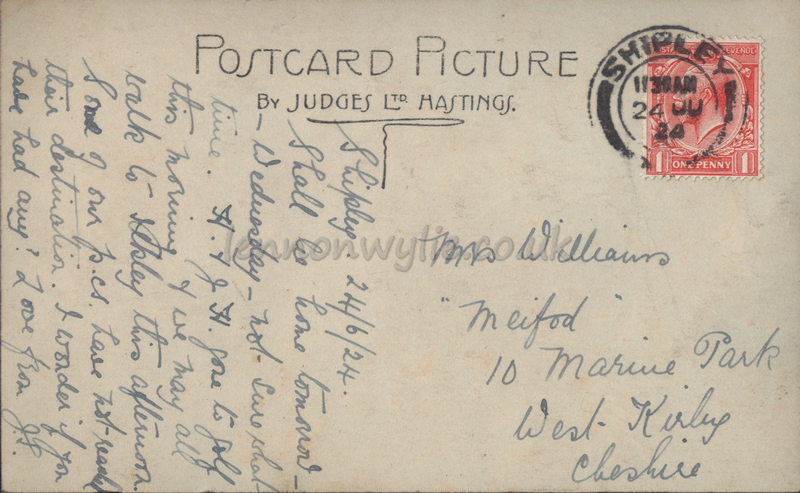 POSTCARD PICTURE
BY JUDGES LTD. HASTINGS.
SHIPLEY
11 30 AM
24 JU
24
POSTAGE REVENUE
ONE PENNY
1 1
Shipley. 24/6/24.
Shall be home tomorrow –
– Wednesday – not sure what
time. H. & J. H. gone to golf
this morning & we may all
walk to Ilkley this afternoon.
Some of our p.cs. have not reached
their destination. I wonder if you
have had any? Love from J.
Mrs Williams
"Meifod"
10 Marine Park
West Kirby
Cheshire
lennonwylie.co.uk